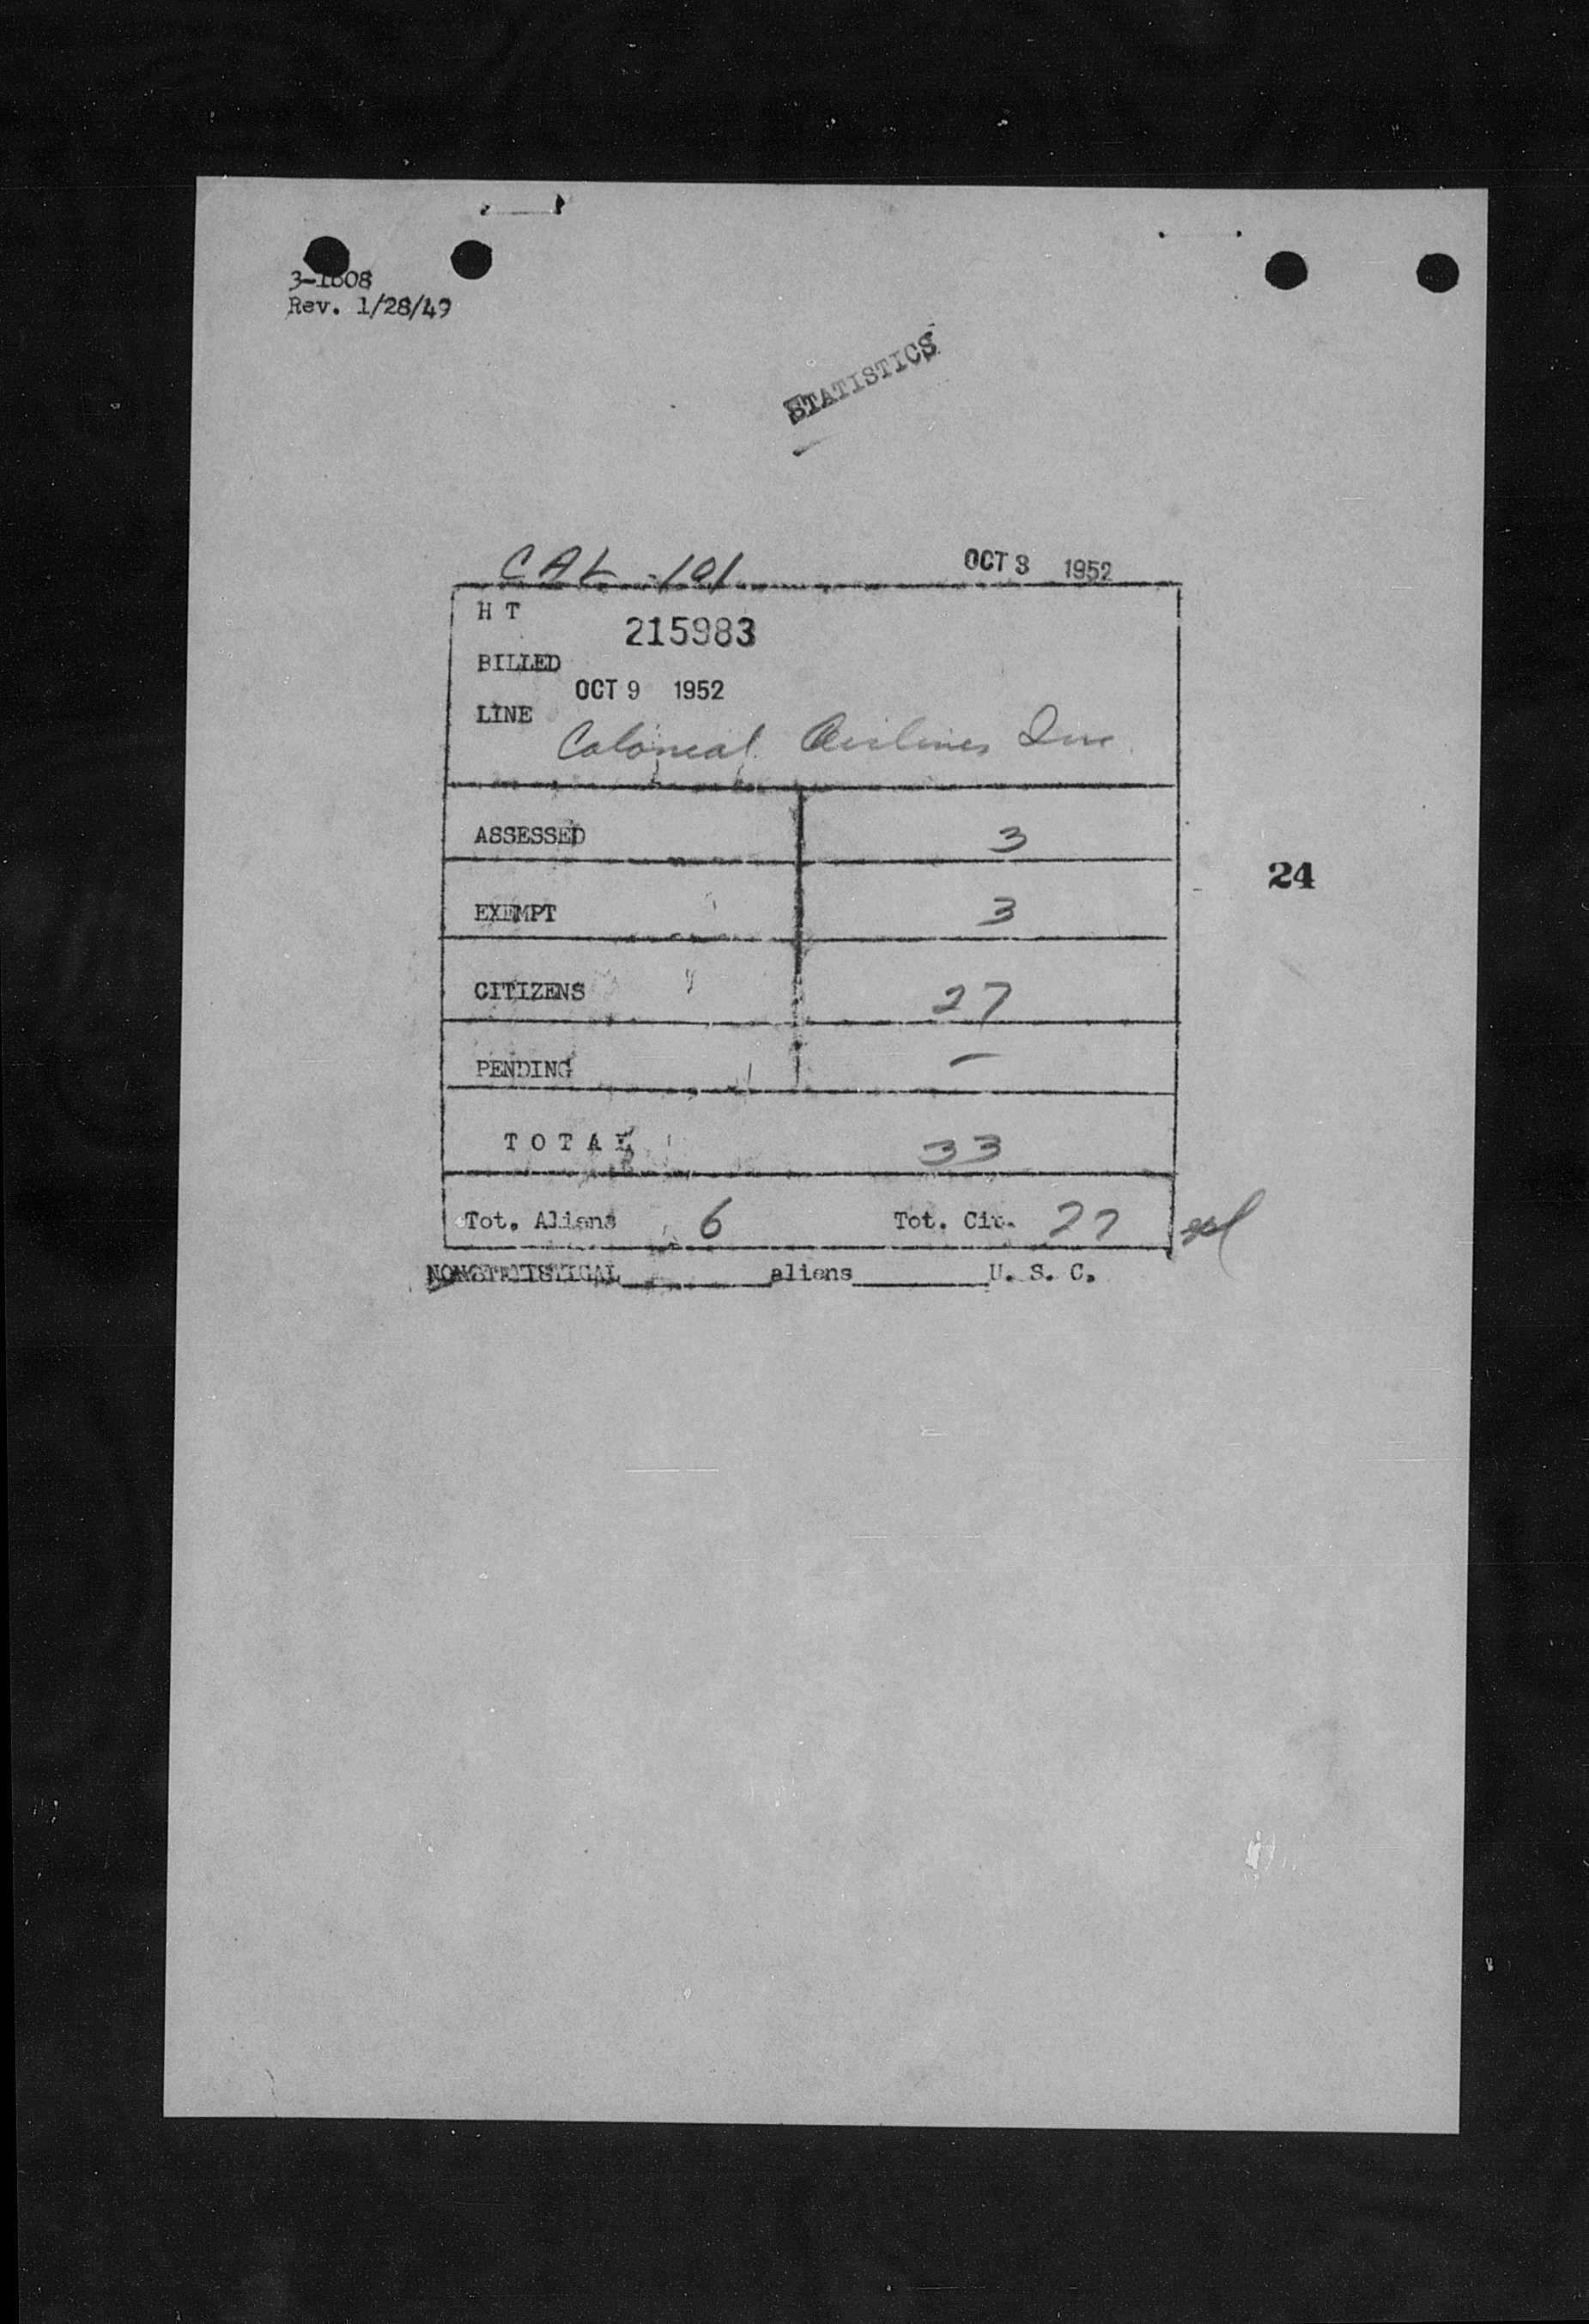 3-1608
Rev. 1/28/49
STATISTICS
CAL-101 OCT 8 1952
H T
215983
BILLED
OCT 9 1952
LINE
Colonial Airlines Inc.
ASSESSED 3
24
EXEMPT 3
CITIZENS 27
PENDING –
TOTAL 33
Tot. Aliens 6 Tot. Cit. 27
NONSTATISTICAL________aliens________U. S. C.